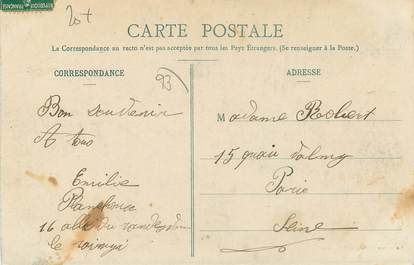 20+
CARTE POSTALE
La Correspondance au recto n'est pas acceptée par tous les Pays Étrangers. (Se renseigner à la Poste.)
CORRESPONDANCE
93
Bon Souvenir
A tous
Emilie
16 allée du
le
ADRESSE
Madame Robert
15 quai Valmy
Paris
Seine